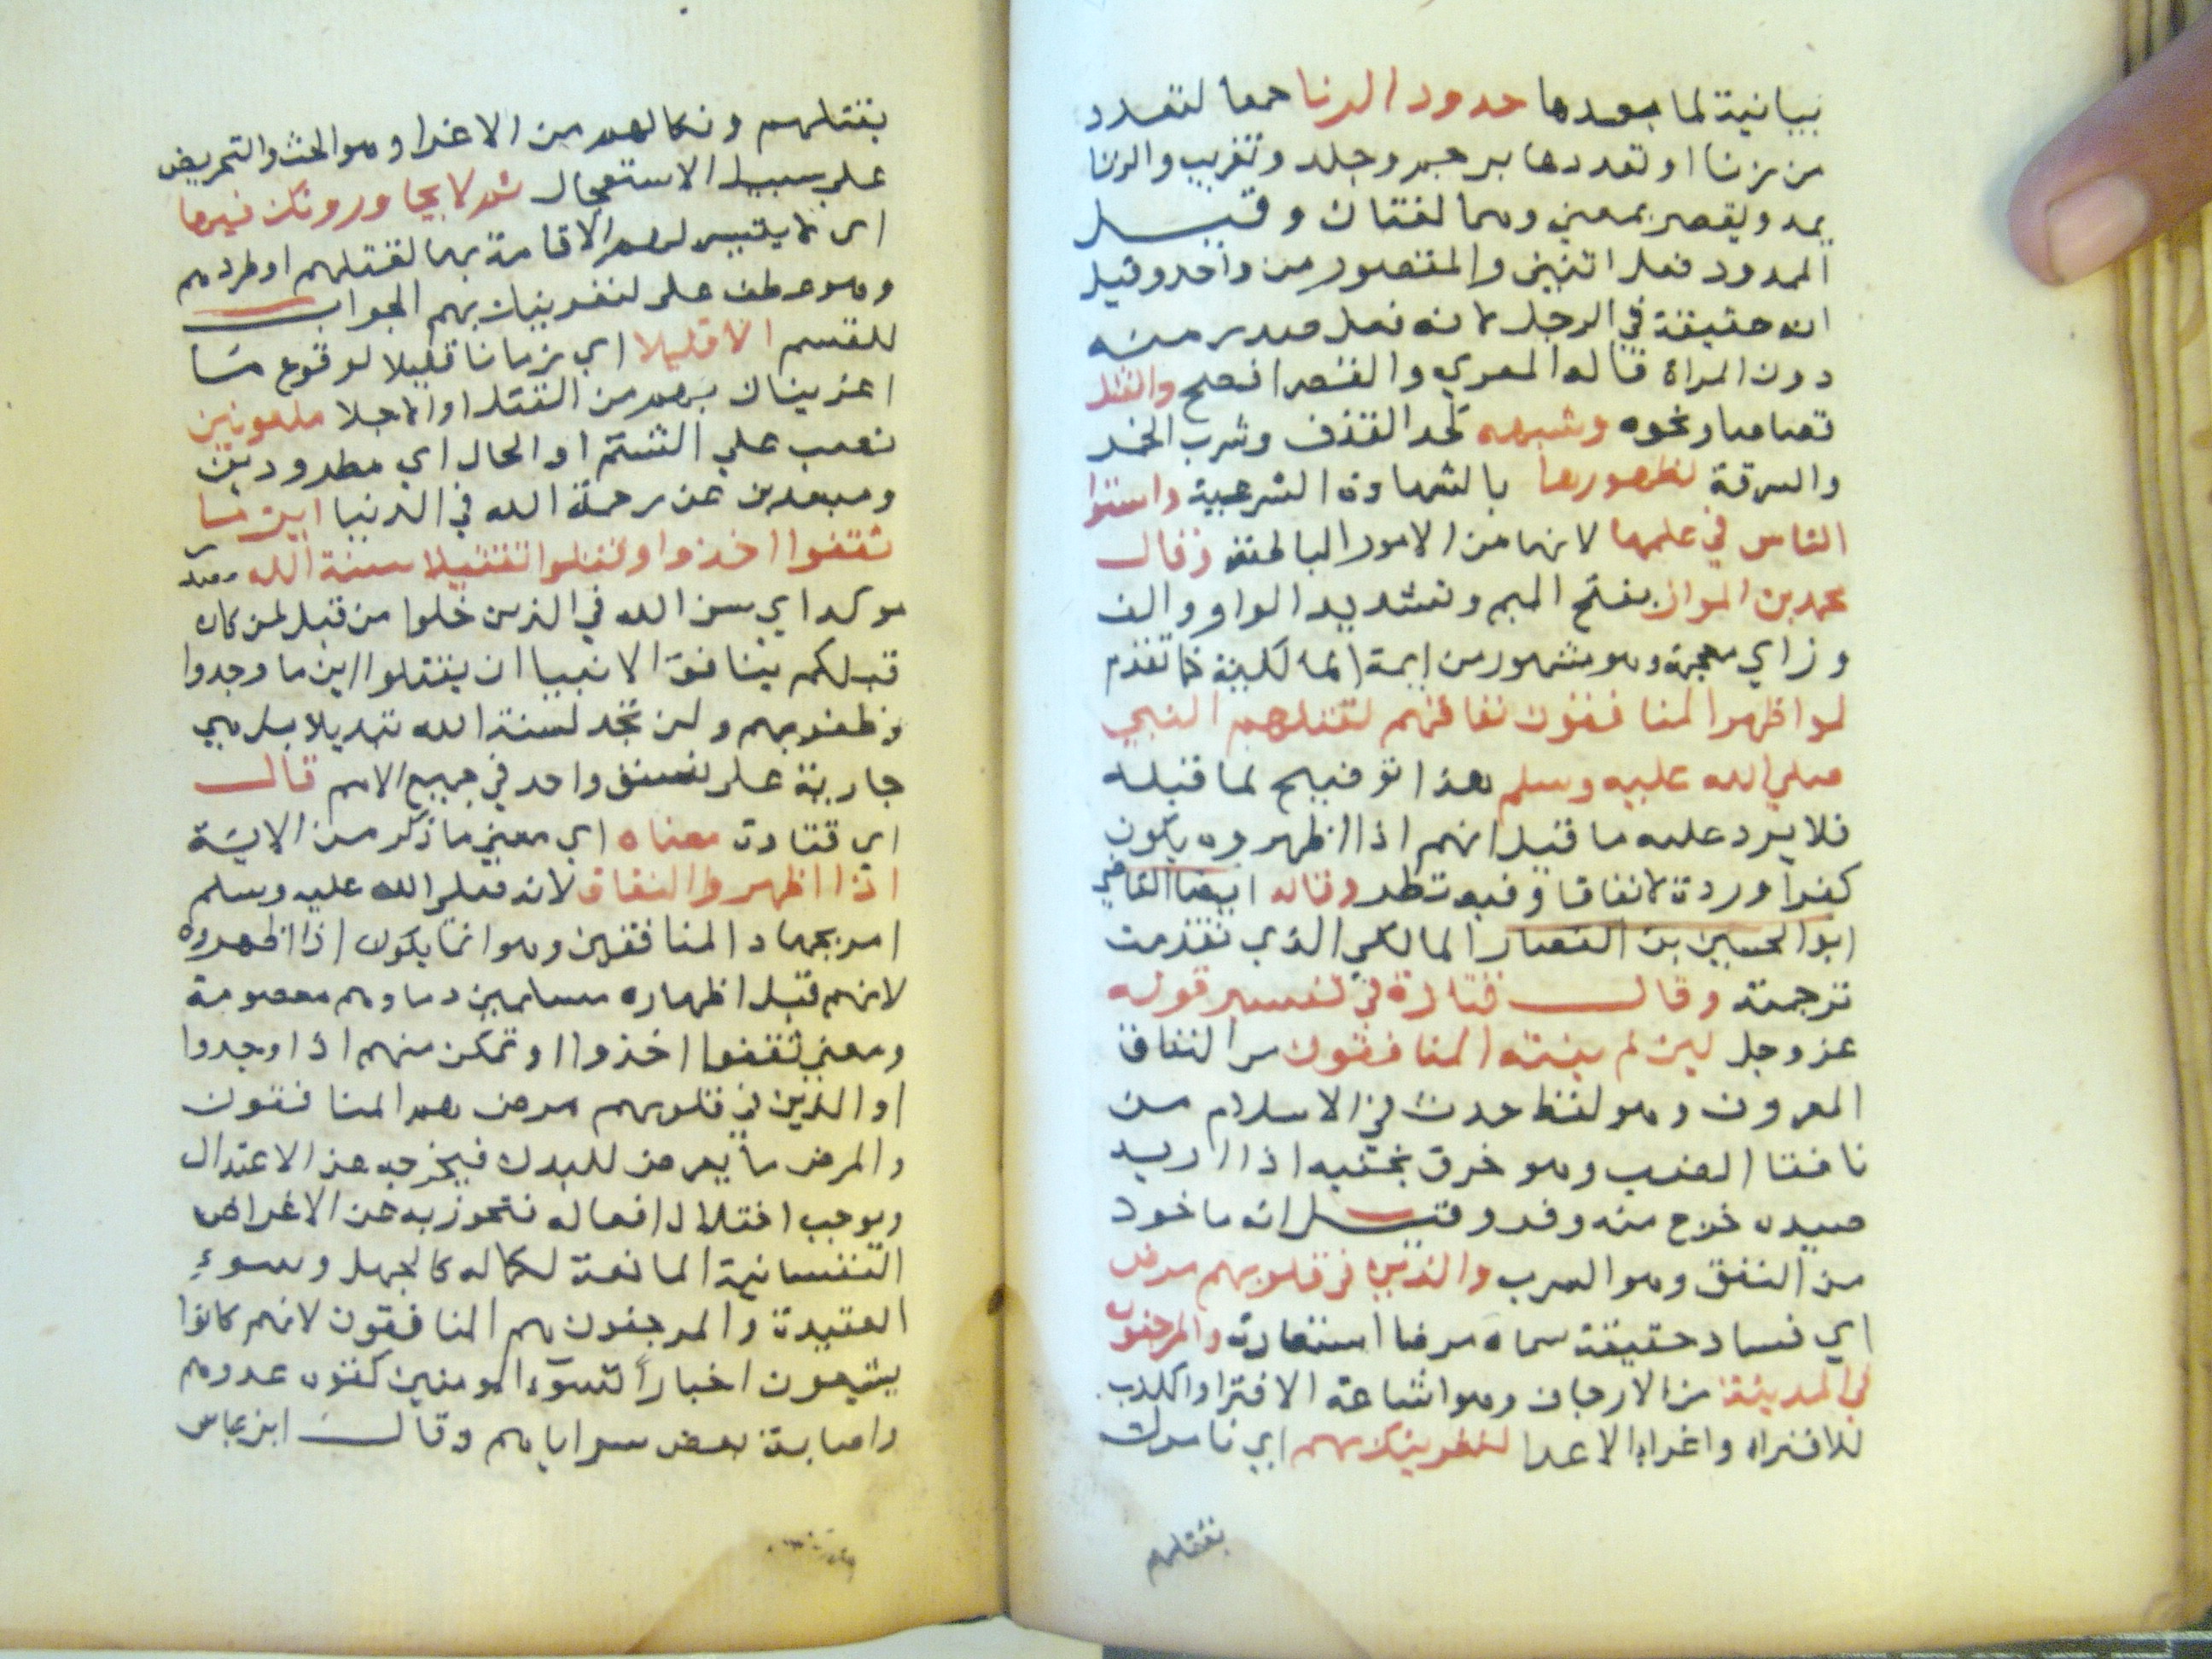 بيانية لما بعدها حدود الزنا جمعا لتعدد
من زنا او تعددها برجم وجلد وتغريب والزنا
يمد ويقصر بمعني وهما لغتان وقيل
الممدود فعل اثنين والمقصور من واحد وقيل
انه حقيقة في الرجل لانه فعل صدر منه
دون المراة قاله المعري والقصر افصح والقتل
قصاصا ونحوه وشبهه كحد القذف وشرب الخمر
والسرقة لظهورها بالشهادة الشرعية واستوا
الناس في علمها لانها من الامور الباطنة وقال
محمد بن المواز بفتح الميم وتشديد الواو والف
وزاي معجمة وهو مشهور من ايمة المالكية كما تقدم
لو اظهر المنافقون نفاقهم لقتلهم النبي
صلي الله عليه وسلم هذا توضيح لما قبله
فلا يرد عليه ما قيل انهم اذا اظهروه يكون
كفرا وردة لانفاقا وفيه نظر وقاله ايضا القاضي
ابو الحسين بن القصار المالكي الذي تقدمت
ترجمته وقال قتادة في تفسير قوله
عز وجل لين لم ينته المنافقون من النفاق
المعروف وهو لفظ حدث في الاسلام من
نافقا الضب وهو خرق بخفيه اذا اريد
صيده خرج منه وفر وقيل انه ماخوذ
من النفق وهو السرب والذين في قلوبهم مرض
اي فساد حقيقة سماه مرضا استعارة والمرجفون
في المدينة من الارجاف وهو اشاعة الافترا والكذب
للافتراء واغراء الاعدا لنغرينك بهم اي نامرك
بقتلهم
بقتلهم ونكالهم من الاغرا وهو الحث والتحريض
علي سبيل الاستعجال ثم لا يجاورونك فيها
اي لا يتيسر لهم الاقامة بها لقتلهم او طردهم
وهو عطف علي لنغرينك بهم الجواب
للقسم الا قليلا اي زمانا قليلا لوقوع ما
اغريناك بهم من القتل او الاجلا ملعونين
نصب علي الشتم او الحال اي مطرودين
ومبعدين عن رحمة الله في الدنيا اين ما
ثقفوا اخذوا وقتلوا تقتيلا سنة الله مصدر
موكد اي سن الله في الذين خلوا من قبل لمن كان
قبلكم ينافق الانبيا ان يقتلوا اين ما وجدوا
وظفر بهم ولن تجد لسنة الله تبديلا بل هي
جارية علي نسق واحد في جميع الامم قال
اي قتادة معناه اي معني ما ذكر من الاية
اذا اظهروا النفاق لانه صلي الله عليه وسلم
امر بجهاد المنافقين وهو انما يكون اذا اظهروه
لانهم قبل اظهاره مسلمين دماوهم معصومة
ومعني ثقفوا اخذوا او تمكن منهم اذا وجدوا
او الذين في قلوبهم مرض هم المنافقون
والمرض ما يعرض للبدن فيخرجه عن الاعتدال
ويوجب اختلال افعاله فتجوز به عن الاغراض
النفسانية المانعة لكماله كالجهل وسوء
العقيدة والمرجفون هم المنافقون لانهم كانوا
يشيعون اخبارا لتسوء المومنين كقوة عدوهم
واصابة بعض سراياهم وقال ابن عباس